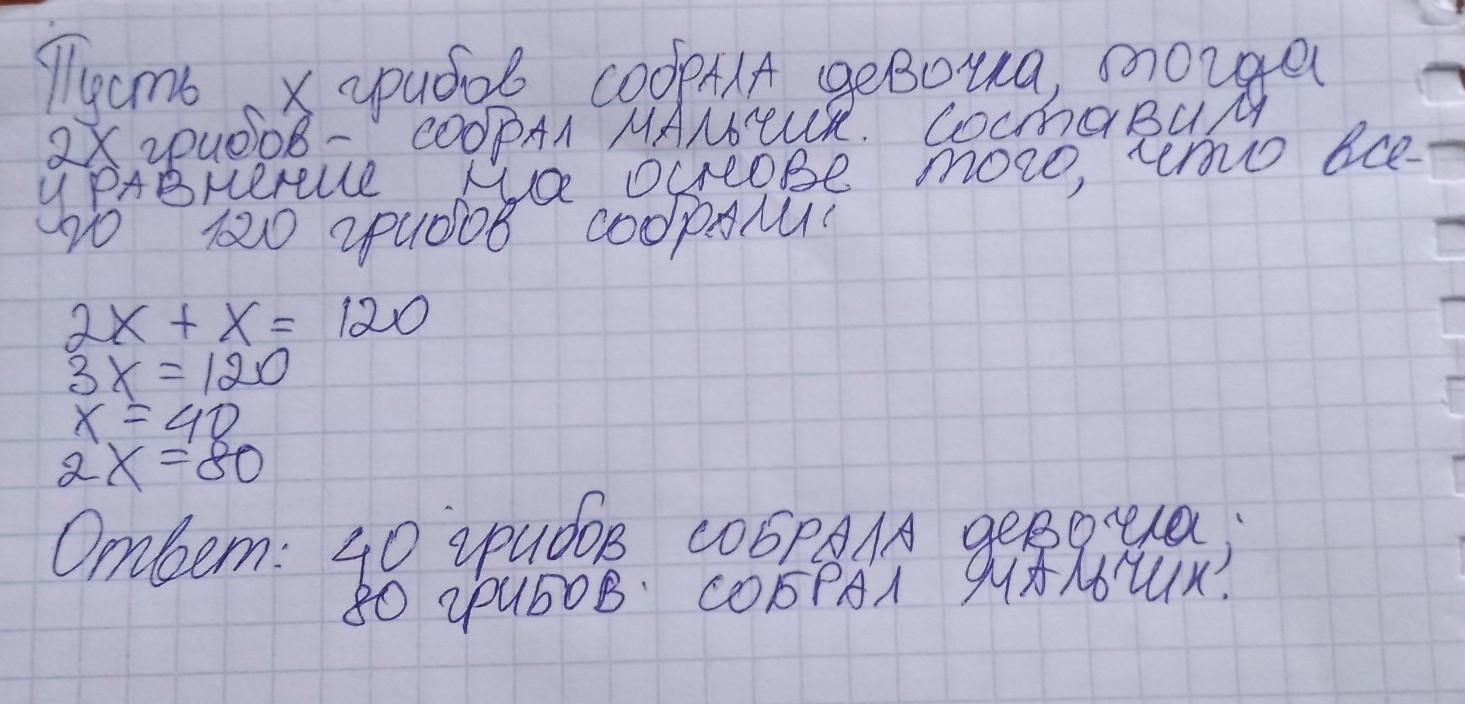 Пусть х грибов собрала девочка, тогда
2х грибов - собрал мальчик. Составим
уравнение на основе того, что все-
го 120 грибов собрали:
2х + х = 120
3х = 120
х = 40
2х = 80
Ответ: 40 грибов собрала девочка;
80 грибов собрал мальчик.